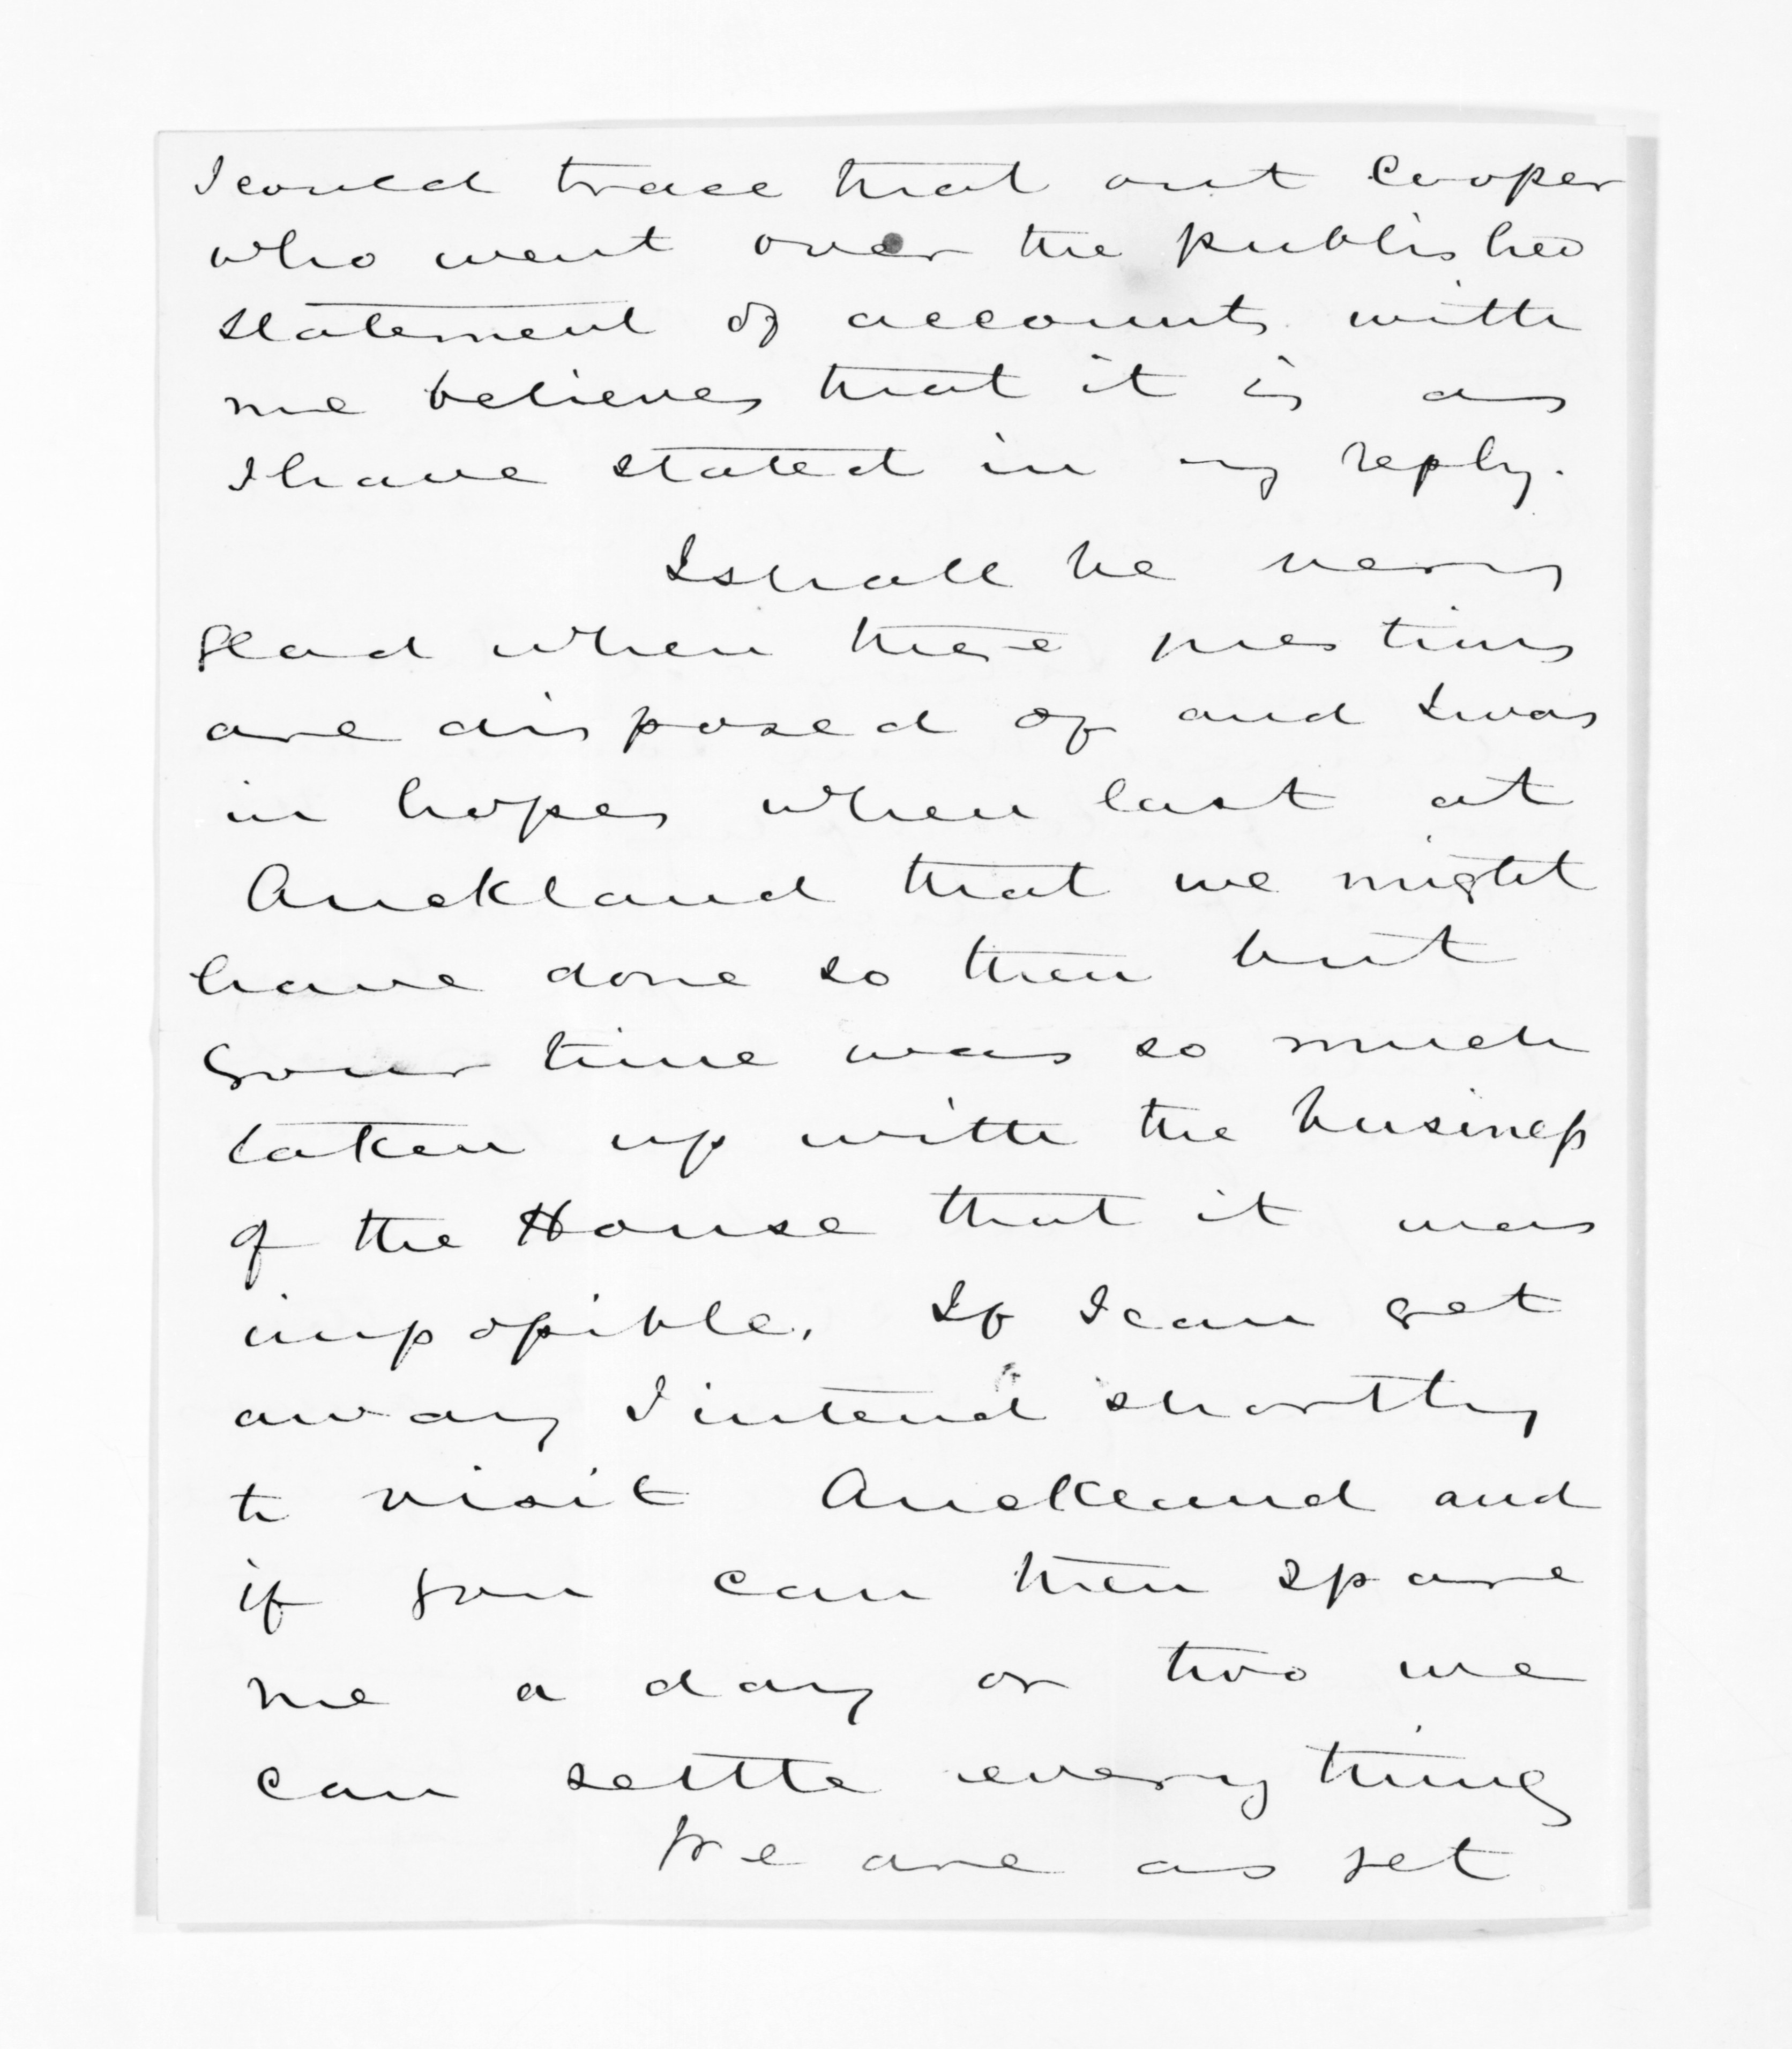 I could trace that out Cooper
who went over the published
statement of accounts with
me believes that it is as
I have stated in my reply.
I shall be very
glad when these questions
are disposed of and I was
in hopes when last at
Auckland that we might
have done so then but
your time was so much
taken up with the business
of the House that it was
impossible. If I can get
away I intend shortly
to visit Auckland and
if you can then spare
me a day or two we
can settle everything
We are as yet